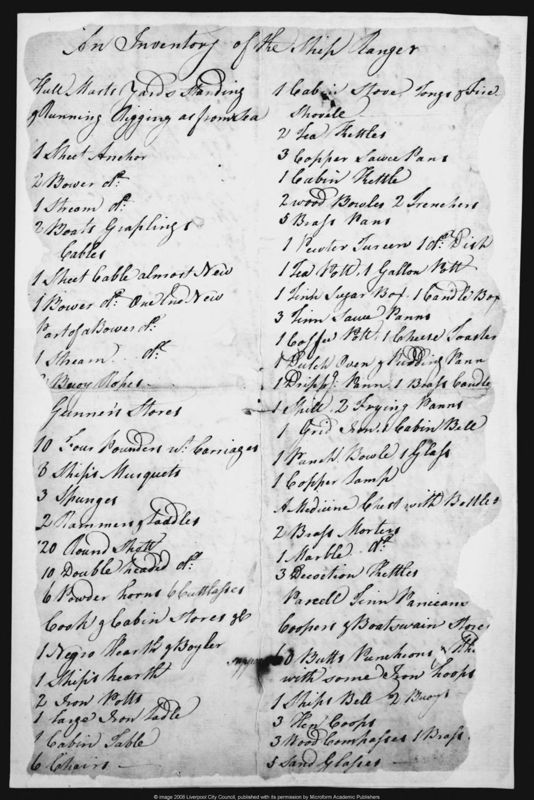 An Inventory of the Ship Ranger
Hull Masts Yards Standing
& Running Rigging as from Sea
1 Sheet Anchor
2 Bower do.
1 Stream do.
2 Boats Graplings
Cables
1 Sheet Cable almost New
1 Bower do. One End New
Part of a Bower do.
1 Stream do.
Buoy Ropes
Gunners Stores
10 Four Pounders wt. Carriages
8 Ships Musquets
3 Spunges
2 Rammers & Laddles
20 Round Shott
10 Double headed do.
6 Powder horns 6 Cuttlasses
Cook & Cabin Stores &c
1 Negro Hearth & Boyler
1 Ships hearth
2 Iron Potts
1 large Iron Ladle
1 Cabin Table
6 Chairs
1 Cabin Stove Tongs & Fire
Shovell
2 Tea Kettles
3 Copper Sawce Pans
1 Cabin Kettle
2 wood Bowles 2 Trenchers
5 Brass Pans
1 Pewter Tureen 1 do. Dish
1 Tea Pott 1 Gallon Pott
1 Tinn Sugar Box 1 Candle Box
3 Tinn Sawce Panns
1 Coffee Pott 1 Cheese Toaster
1 Dutch Oven & Pudding Pann
1 Dripg. Pann 1 Brass Candle
1 Spitt 2 Frying Panns
1 Grid Iron 1 Cabin Bell
1 Punch Bowle 1 Glass
1 Copper Lamp
A Medicine Chest with Bottles
2 Brass Morters
1 Marble do.
3 Decoction Kettles
Parcell Tinn Panicans
Coopers & Boatswain Stores
60 Butts Puncheons &
with some Iron hoops
1 Ships Bell 2 Buoys
3 Hen Coops
3 Wood Compasses 1 Brass
5 Sand Glasses
© image 2006 Liverpool City Council, published with its permission by Microform Academic Publishers